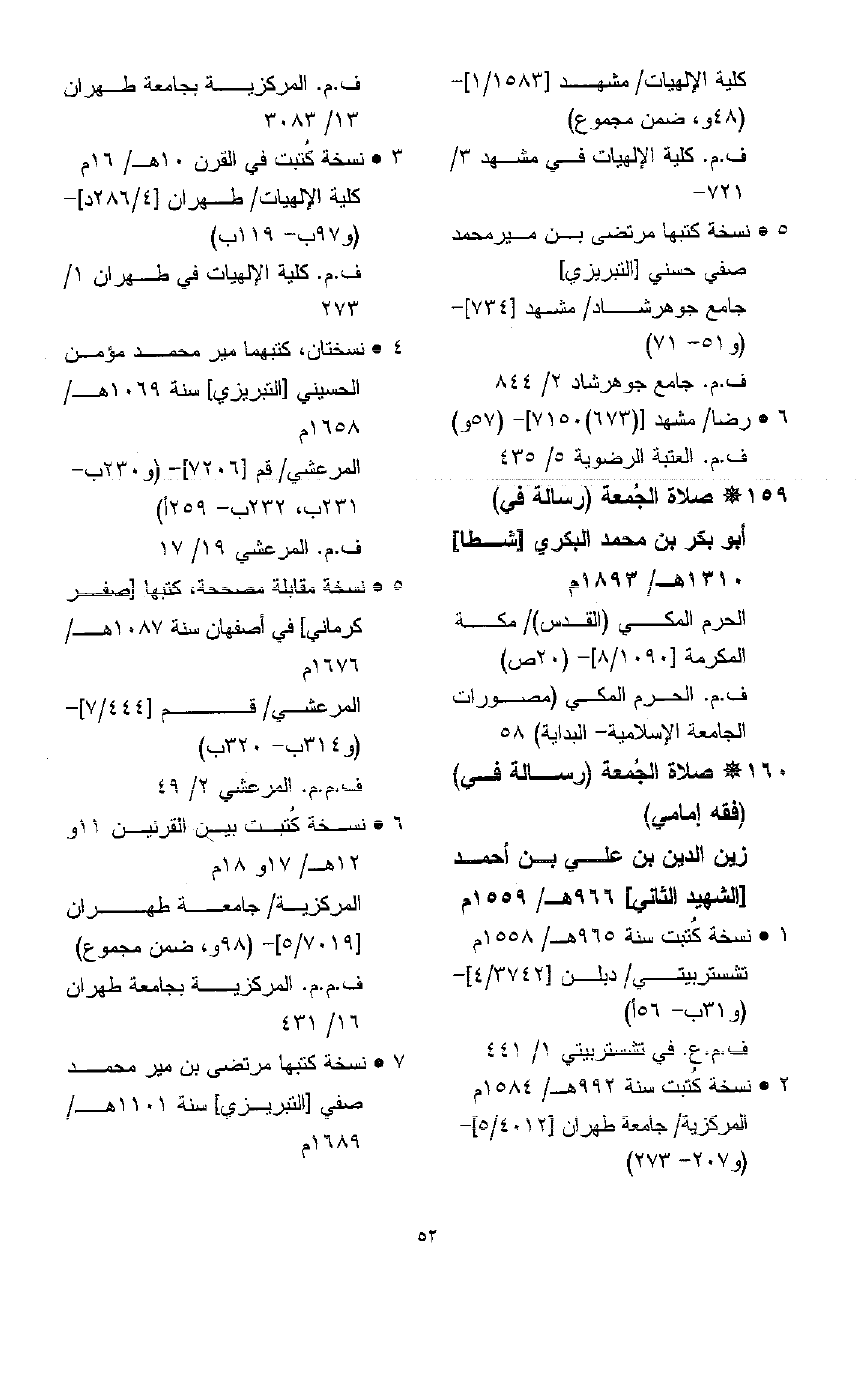 كلية الإلهيات/ مشهد [١/١٥٨٣]-
(٤٨و، ضمن مجموع)
ف.م. كلية الإلهيات في مشهد ٣/
٧٢١-
٥ • نسخة كتبها مرتضى بن ميرمحمد
صفي حسني [التبريزي]
جامع جوهرشاد/ مشهد [٧٣٤]-
(و٥١- ٧١)
ف.م. جامع جوهرشاد ٢/ ٨٤٤
٦ • رضا/ مشهد [(٦٧٣)٧١٥٠]- (٥٧و)
ف.م. العتبة الرضوية ٥/ ٤٣٥
١٥٩ * صلاة الجُمعة (رسالة في)
أبو بكر بن محمد البكري [شطا]
١٣١٠هـ/ ١٨٩٣م
الحرم المكي (القدس)/ مكة
المكرمة [٨/١٠٩٠]- (٢٠ص)
ف.م. الحرم المكي (مصورات
الجامعة الإسلامية- البداية) ٥٨
١٦٠ * صلاة الجُمعة (رسالة في)
(فقه إمامي)
زين الدين بن علي بن أحمد
[الشهيد الثاني] ٩٦٦هـ/ ١٥٥٩م
١ • نسخة كُتبت سنة ٩٦٥هـ/ ١٥٥٨م
تشستربيتي/ دبلن [٤/٣٧٤٢]-
(و٣١ب- ٥٦أ)
ف.م.ع. في تشستربيتي ١/ ٤٤١
٢ • نسخة كُتبت سنة ٩٩٢هـ/ ١٥٨٤م
المركزية/ جامعة طهران [٥/٤٠١٢]-
(و٢٠٧- ٢٧٣)
ف.م. المركزية بجامعة طهران
١٣/ ٣٠٨٣
٣ • نسخة كُتبت في القرن ١٠هـ/ ١٦م
كلية الإلهيات/ طهران [٢٨٦/٤د]-
(و٩٧ب- ١١٩ب)
ف.م. كلية الإلهيات في طهران ١/
٢٧٣
٤ • نسختان، كتبهما مير محمد مؤمن
الحسيني [التبريزي] سنة ١٠٦٩هـ/
١٦٥٨م
المرعشي/ قم [٧٢٠٦]- (و٢٣٠ب-
٢٣١ب، ٢٣٢ب- ٢٥٩أ)
ف.م. المرعشي ١٩/ ١٧
٥ • نسخة مقابلة مصححة، كتبها [صفر
كرماني] في أصفهان سنة ١٠٨٧هـ/
١٦٧٦م
المرعشي/ قم [٧/٤٤٤]-
(و٣١٤ب- ٣٢٠ب)
ف.م.م. المرعشي ٢/ ٤٩
٦ • نسخة كُتبت بين القرنين ١١و
١٢هـ/ ١٧و ١٨م
المركزية/ جامعة طهران
[٥/٧٠١٩]- (٩٨و، ضمن مجموع)
ف.م.م. المركزية بجامعة طهران
١٦/ ٤٣١
٧ • نسخة كتبها مرتضى بن مير محمد
صفي [التبريزي] سنة ١١٠١هـ/
١٦٨٩م
٥٢